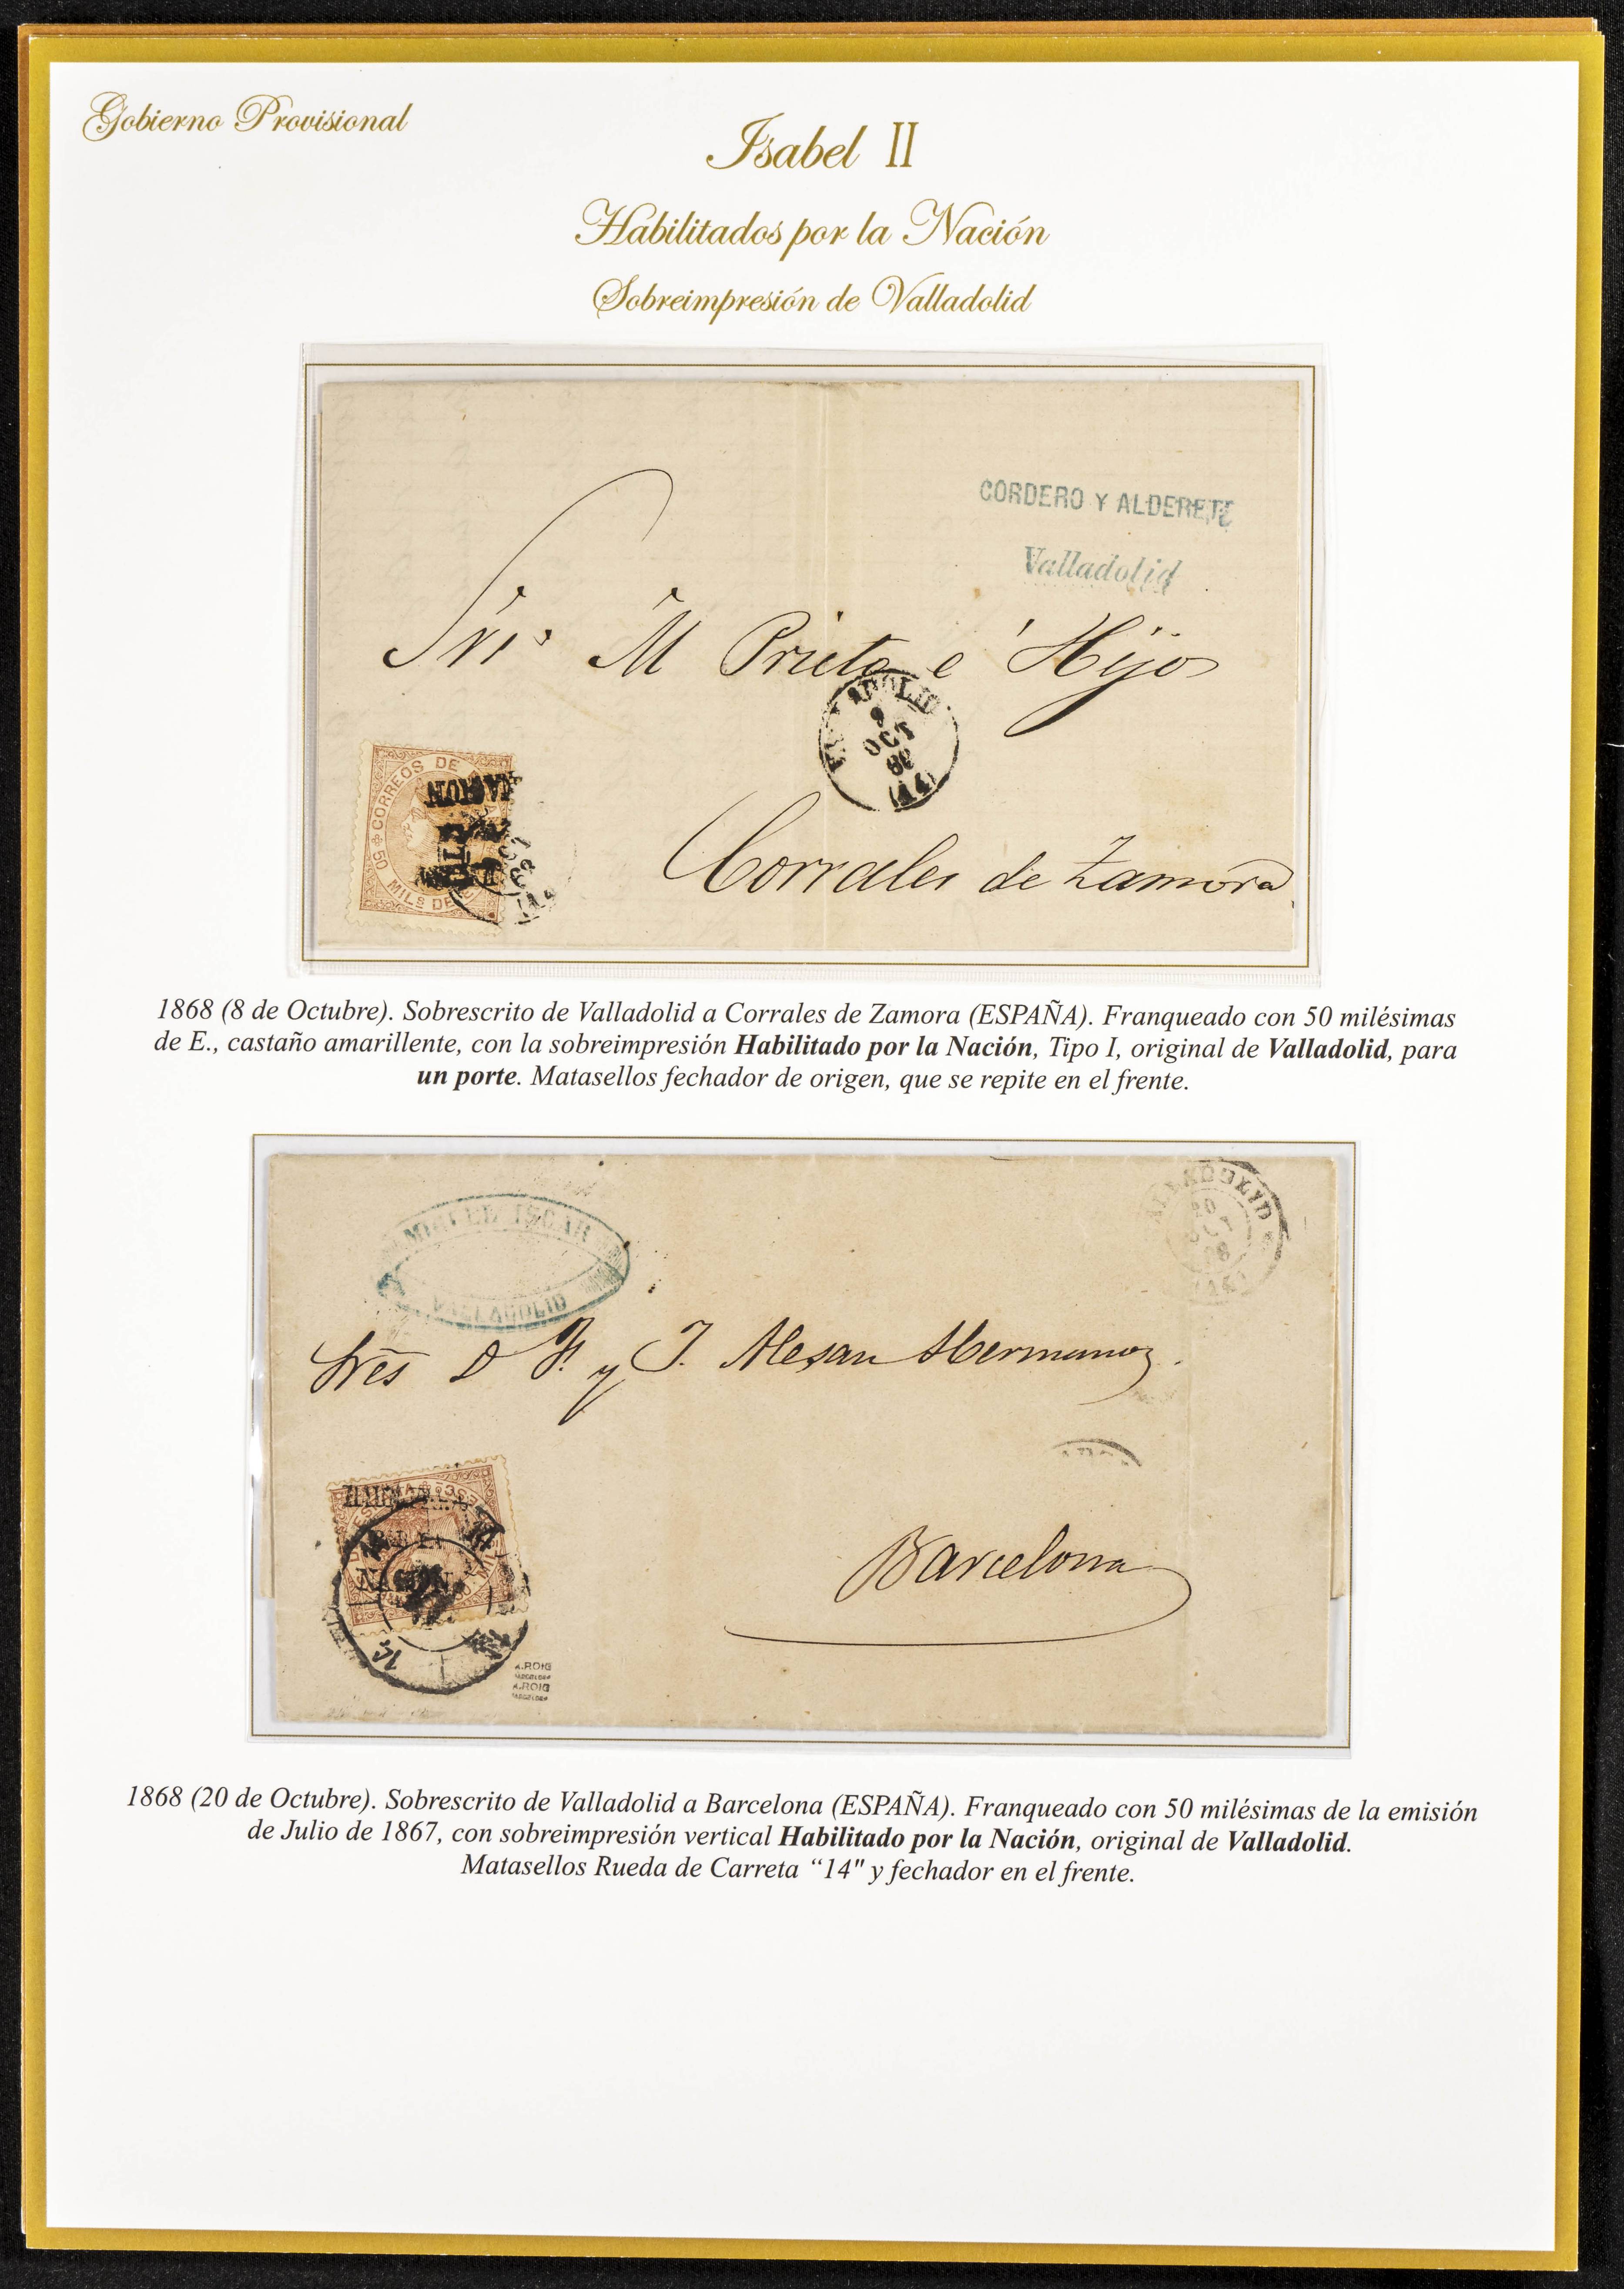 Gobierno Provisional
Isabel II
Habilitados por la Nación
Sobreimpresión de Valladolid
CORDERO Y ALDERETE
Valladolid
Sres M Prieto e Hijos
VALLADOLID
9
OCT
68
(14)
CORREOS DE
50
MILS DE E
NACION
Corrales de Zamora
1868 (8 de Octubre). Sobrescrito de Valladolid a Corrales de Zamora (ESPAÑA). Franqueado con 50 milésimas
de E., castaño amarillente, con la sobreimpresión Habilitado por la Nación, Tipo I, original de Valladolid, para
un porte. Matasellos fechador de origen, que se repite en el frente.
MIGUEL ISCAR
VALLADOLID
VALLADOLID
20
OCT
68
(14)
Sres D F. y J. Alesan Hermanos.
NACION
Barcelona
A.ROIG
BARCELONA
A.ROIG
BARCELONA
1868 (20 de Octubre). Sobrescrito de Valladolid a Barcelona (ESPAÑA). Franqueado con 50 milésimas de la emisión
de Julio de 1867, con sobreimpresión vertical Habilitado por la Nación, original de Valladolid.
Matasellos Rueda de Carreta “14" y fechador en el frente.